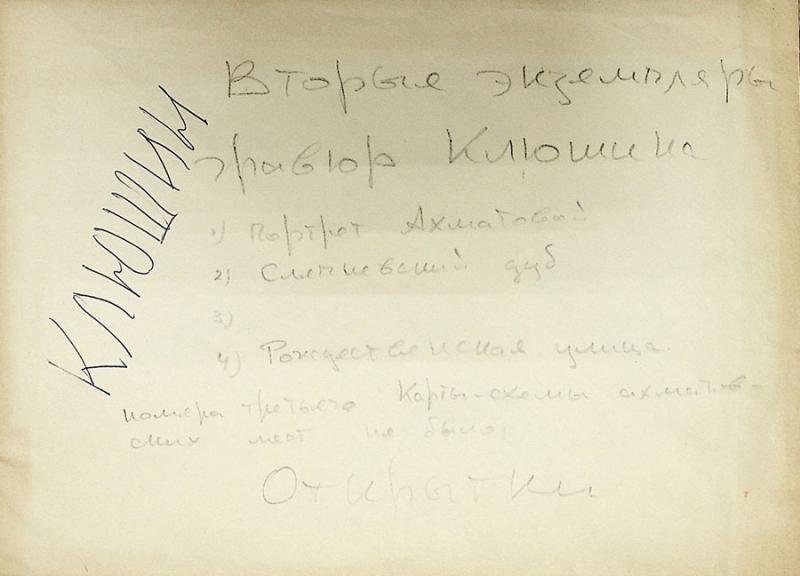 КЛЮШИН
Вторые экземпляры
гравюр Клюшина
1) Портрет Ахматовой
2) Слепневский дуб
3)
4) Рождественская улица.
номера третьего Карты-схемы ахматов-
ских мест не было.
Открытки